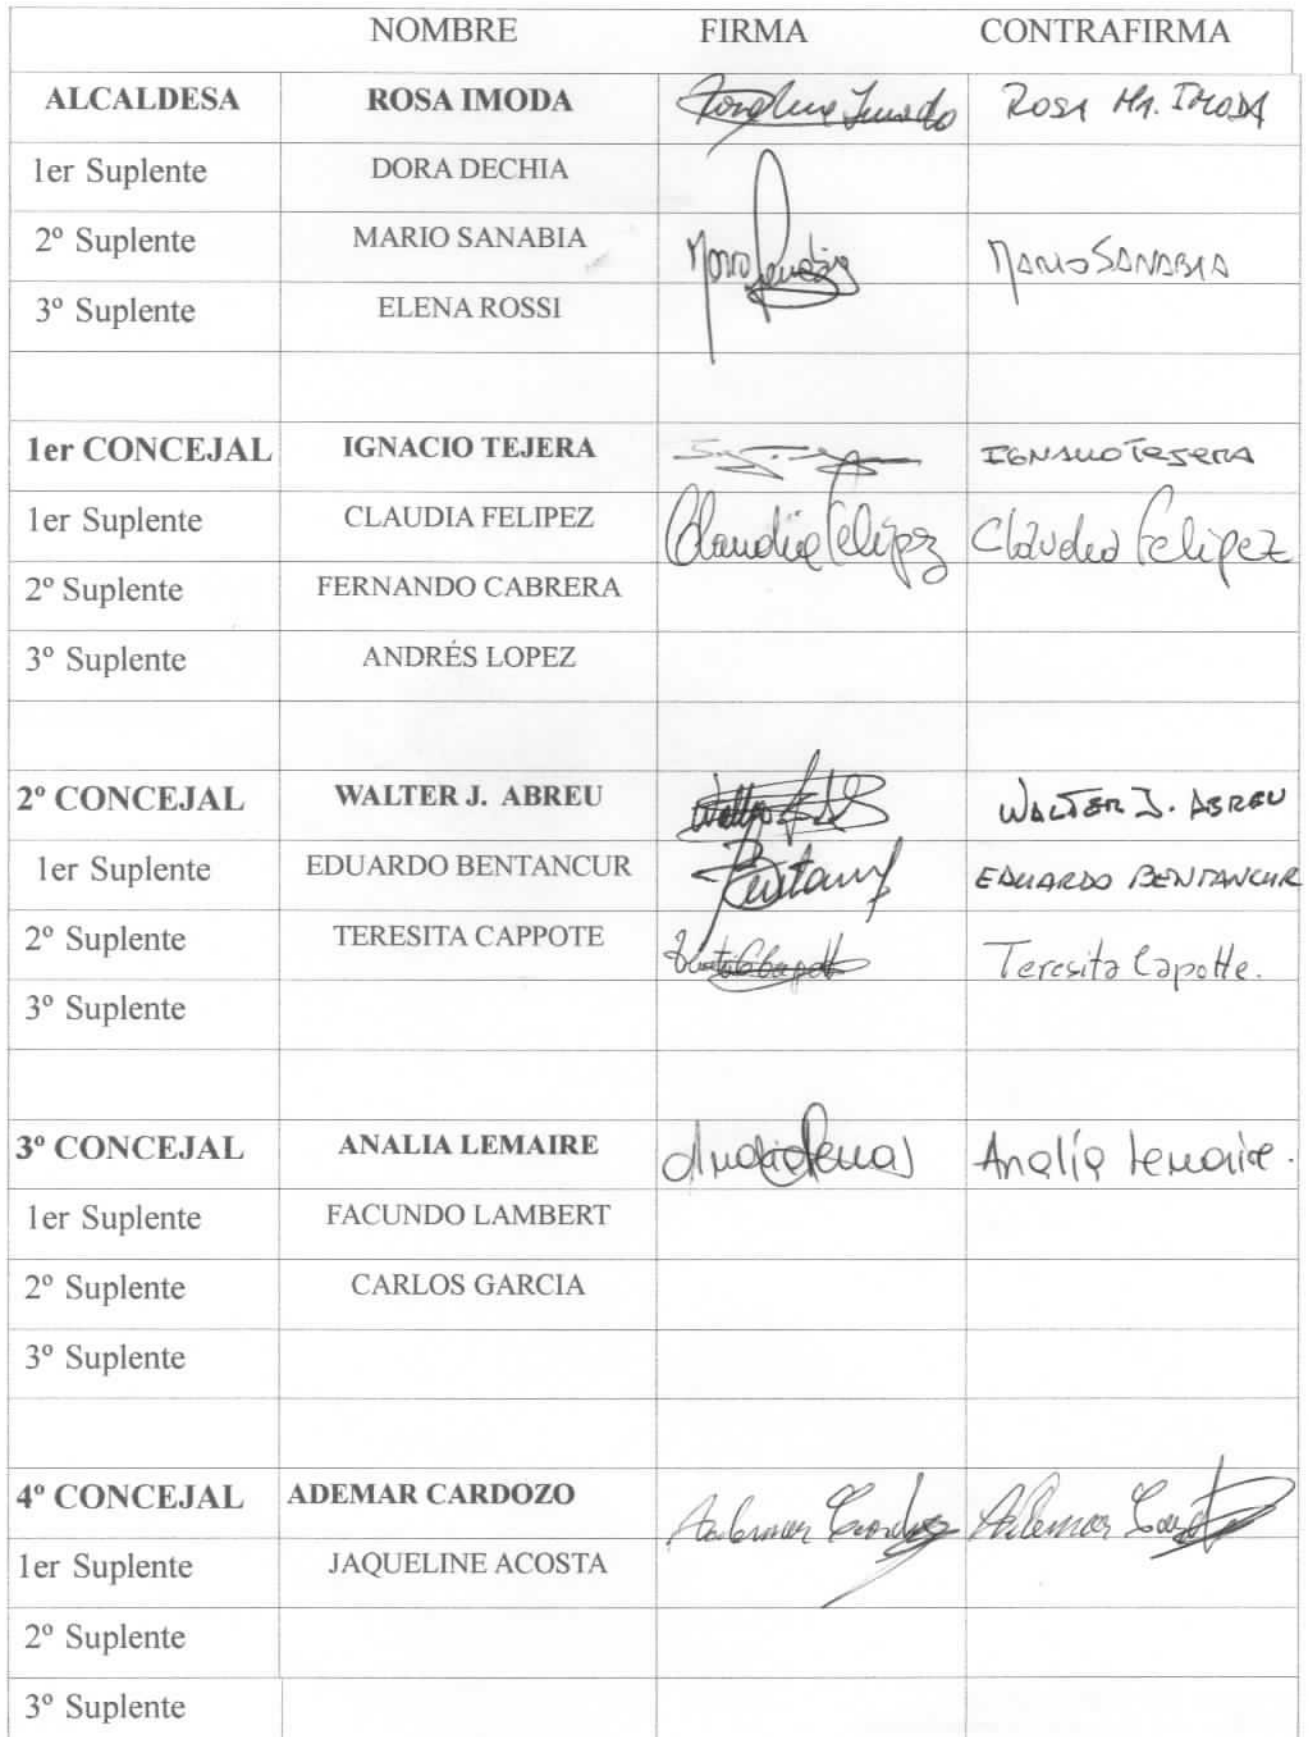 NOMBRE FIRMA CONTRAFIRMA
ALCALDESA ROSA IMODA ROSA Ma. IMODA
1er Suplente DORA DECHIA
2º Suplente MARIO SANABIA MARIO SANABIA
3º Suplente ELENA ROSSI
1er CONCEJAL IGNACIO TEJERA IGNACIO TEJERA
1er Suplente CLAUDIA FELIPEZ Claudia Felipez Claudia Felipez
2º Suplente FERNANDO CABRERA
3º Suplente ANDRÉS LOPEZ
2º CONCEJAL WALTER J. ABREU WALTER J. ABREU
1er Suplente EDUARDO BENTANCUR EDUARDO BENTANCUR
2º Suplente TERESITA CAPPOTE Teresita Capotte.
3º Suplente
3º CONCEJAL ANALIA LEMAIRE Analía Lemaire.
1er Suplente FACUNDO LAMBERT
2º Suplente CARLOS GARCIA
3º Suplente
4º CONCEJAL ADEMAR CARDOZO Ademar Cardozo Ademar
1er Suplente JAQUELINE ACOSTA
2º Suplente
3º Suplente